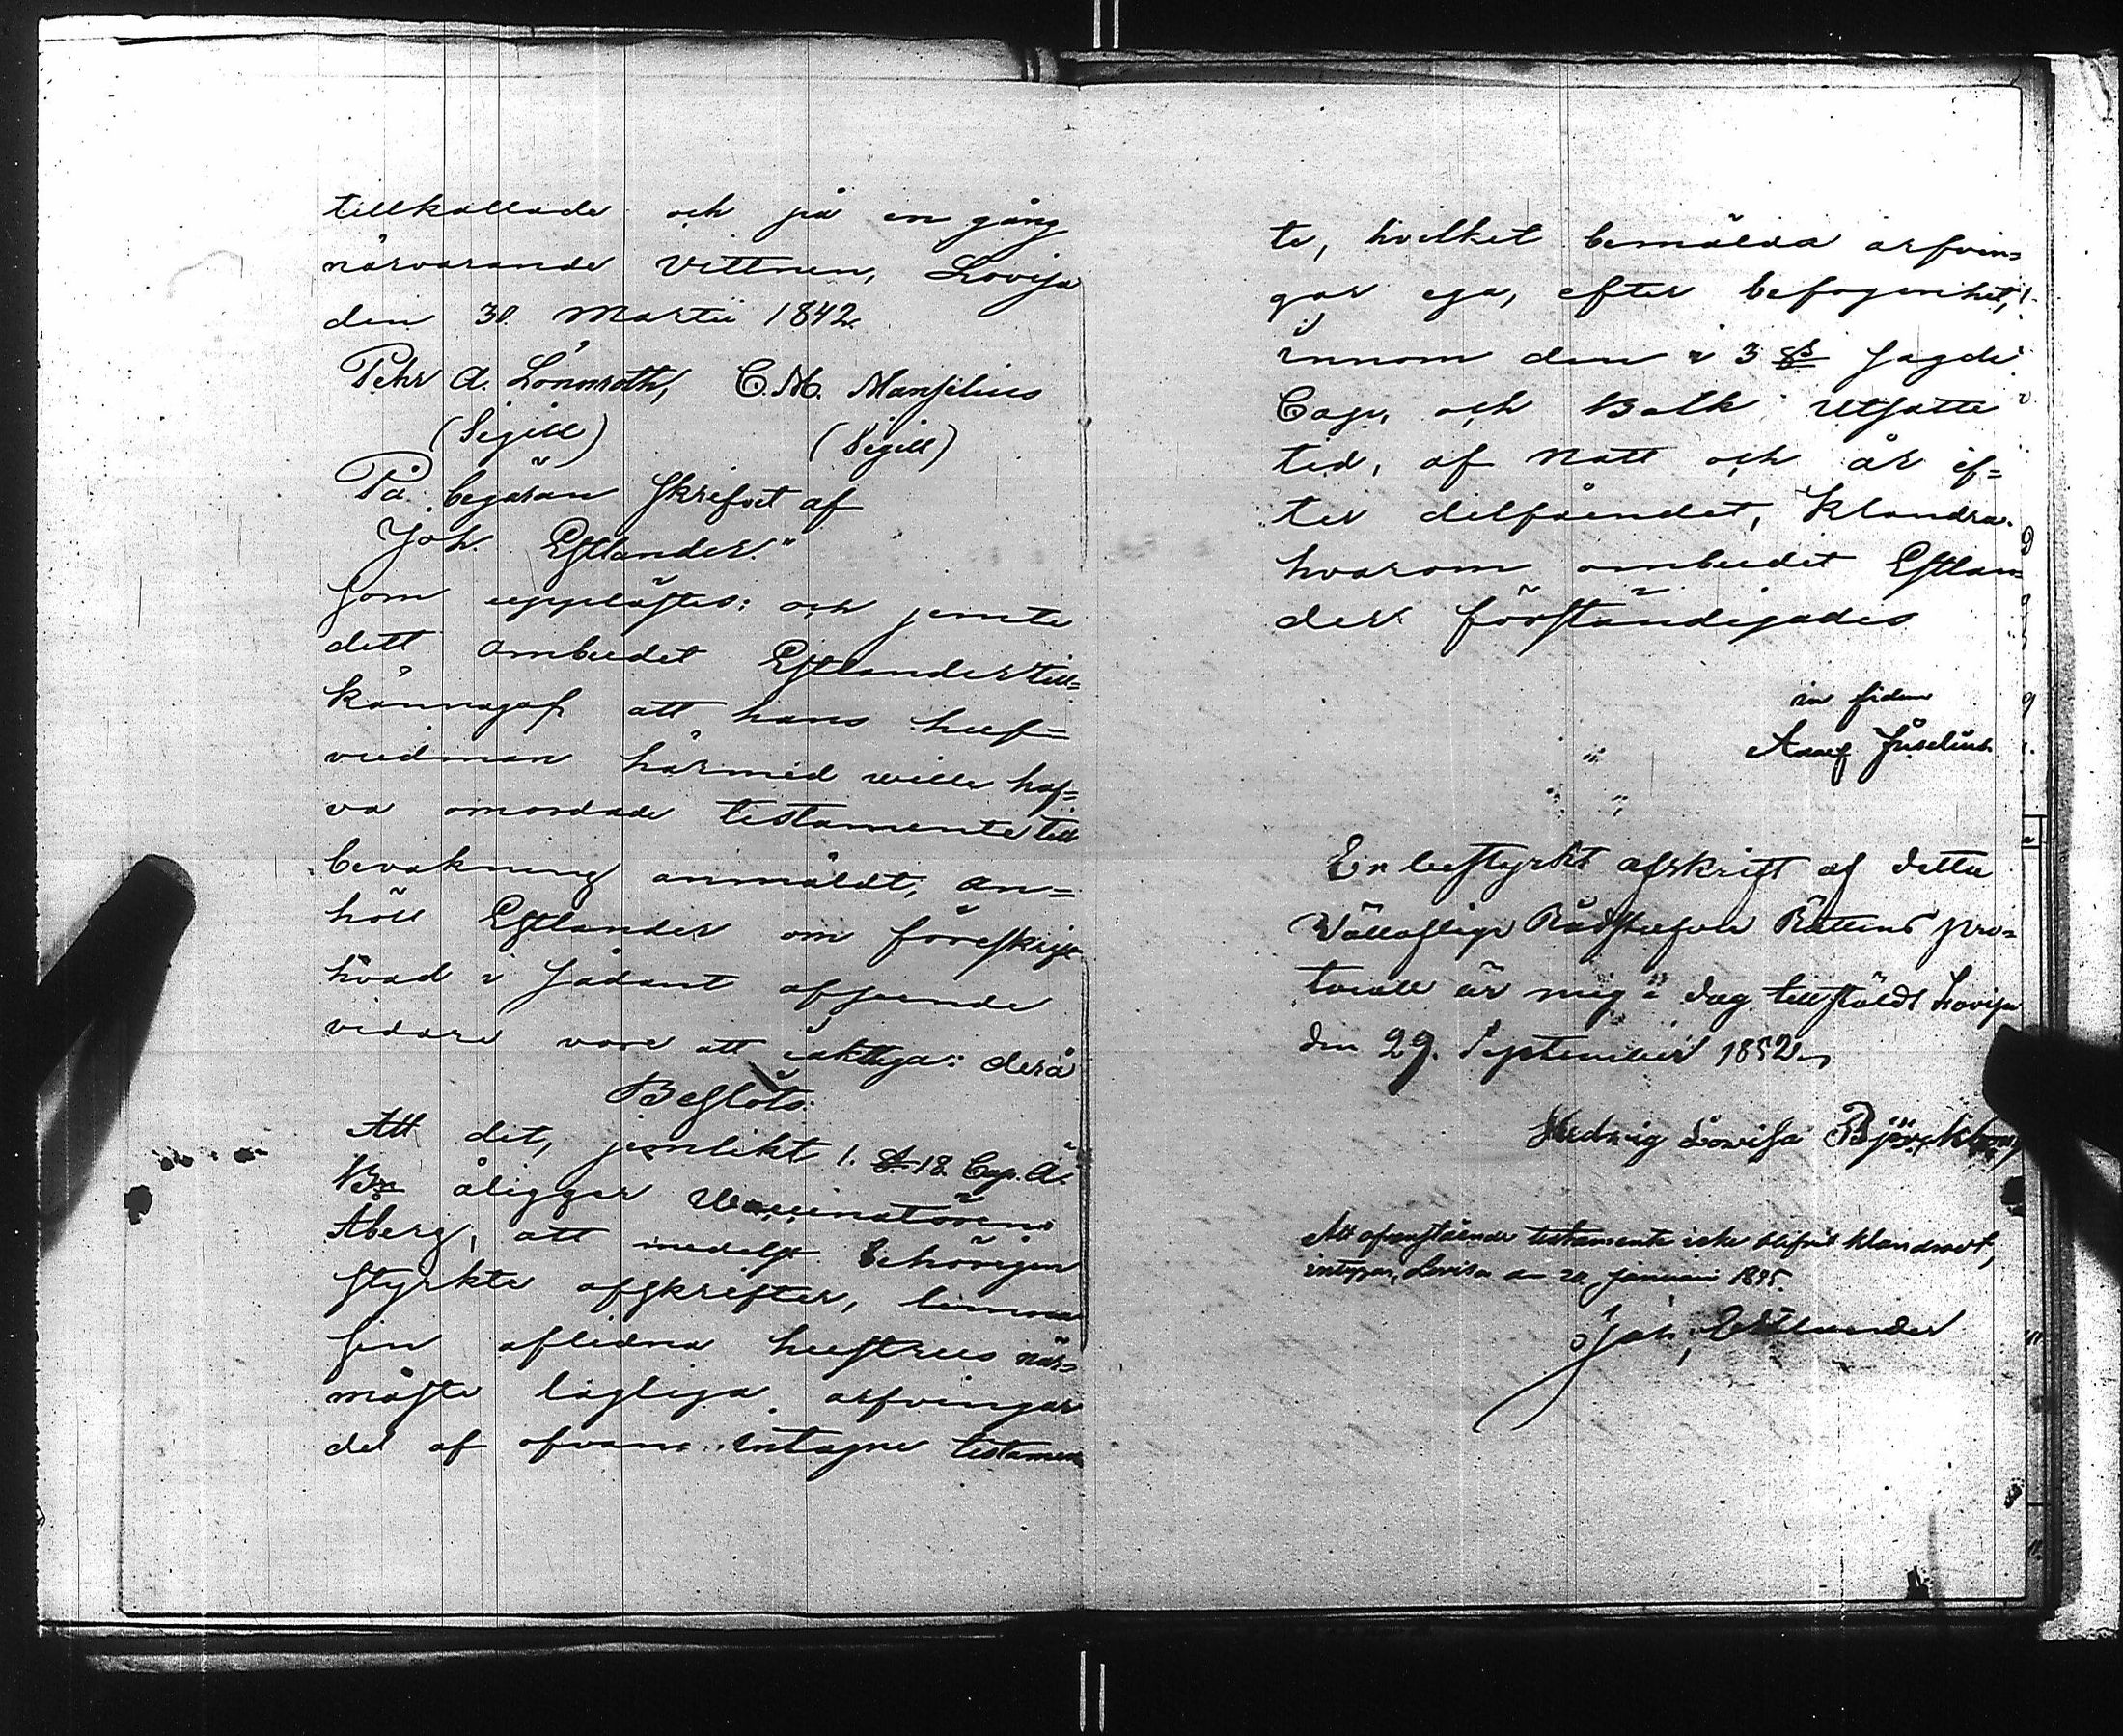 tillkallade och på en gång
närvarande Vittnen, Lovisa
den 30 Martii 1842.
Pehr A. Lönnroth, C. M. Manselius
(Sigill) (Sigill)
På begäran skrifvet af
Joh. Estlander."
som upplästes: och jemte
dett ombudet Estlander till=
kännagaf att hans huf=
vudman härmed wille haf=
va omordade testamente till
bevakning anmäldt, an=
höll Estlander om föreskrift
hvad i sådant afseende
vidare vore att iakttaga: derå
Beslöts:
Att det, jemlikt 1. § 18. Cap. Ä.
Bn åligger Vaccinatoren
Åberg, att medelst behörigen
styrkte afskrifter, lemna
sin aflidna hustrus när=
maste laglige arfvingar
del af ofvan intagne testamen
te, hvilket bemälda arfvin=
gar ega, efter befogenhet,
innom den i 3 § sagde
Cap. och Balk utsatte
tid, af natt och år ef=
ter delfåendet, klandra.
hvarom ombudet Estlan=
der förständigades
in fidem
Assef Juselius
En bestyrkt afskrift af detta
Wällofliga Rådstufvu Rättens pro=
tocoll är mig i dag tillstäldt Lovisa
den 29. September 1852,
Hedvig Lovisa Björckbom,
Att ofvanstående testamente icke blifvit klandradt,
intygar, Lovisa den 20 Januari 1895.
Joh. Estlander